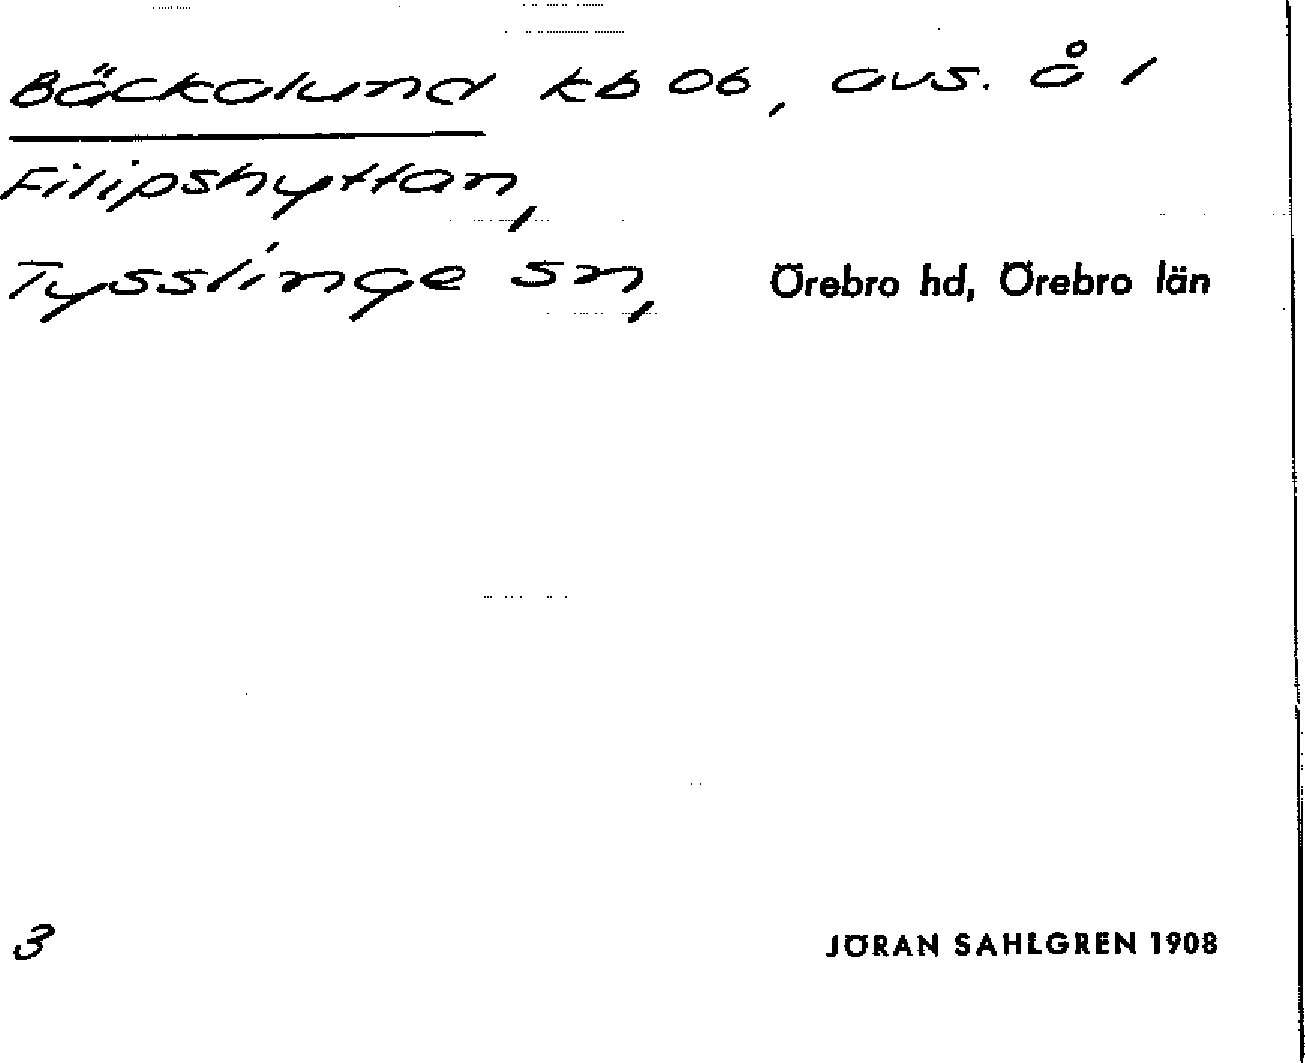 Bäckalund kb 06, avs. å 1
Filipshyttan,
Tysslinge sn, Örebro hd, Örebro län
3
JÖRAN SAHLGREN 1908